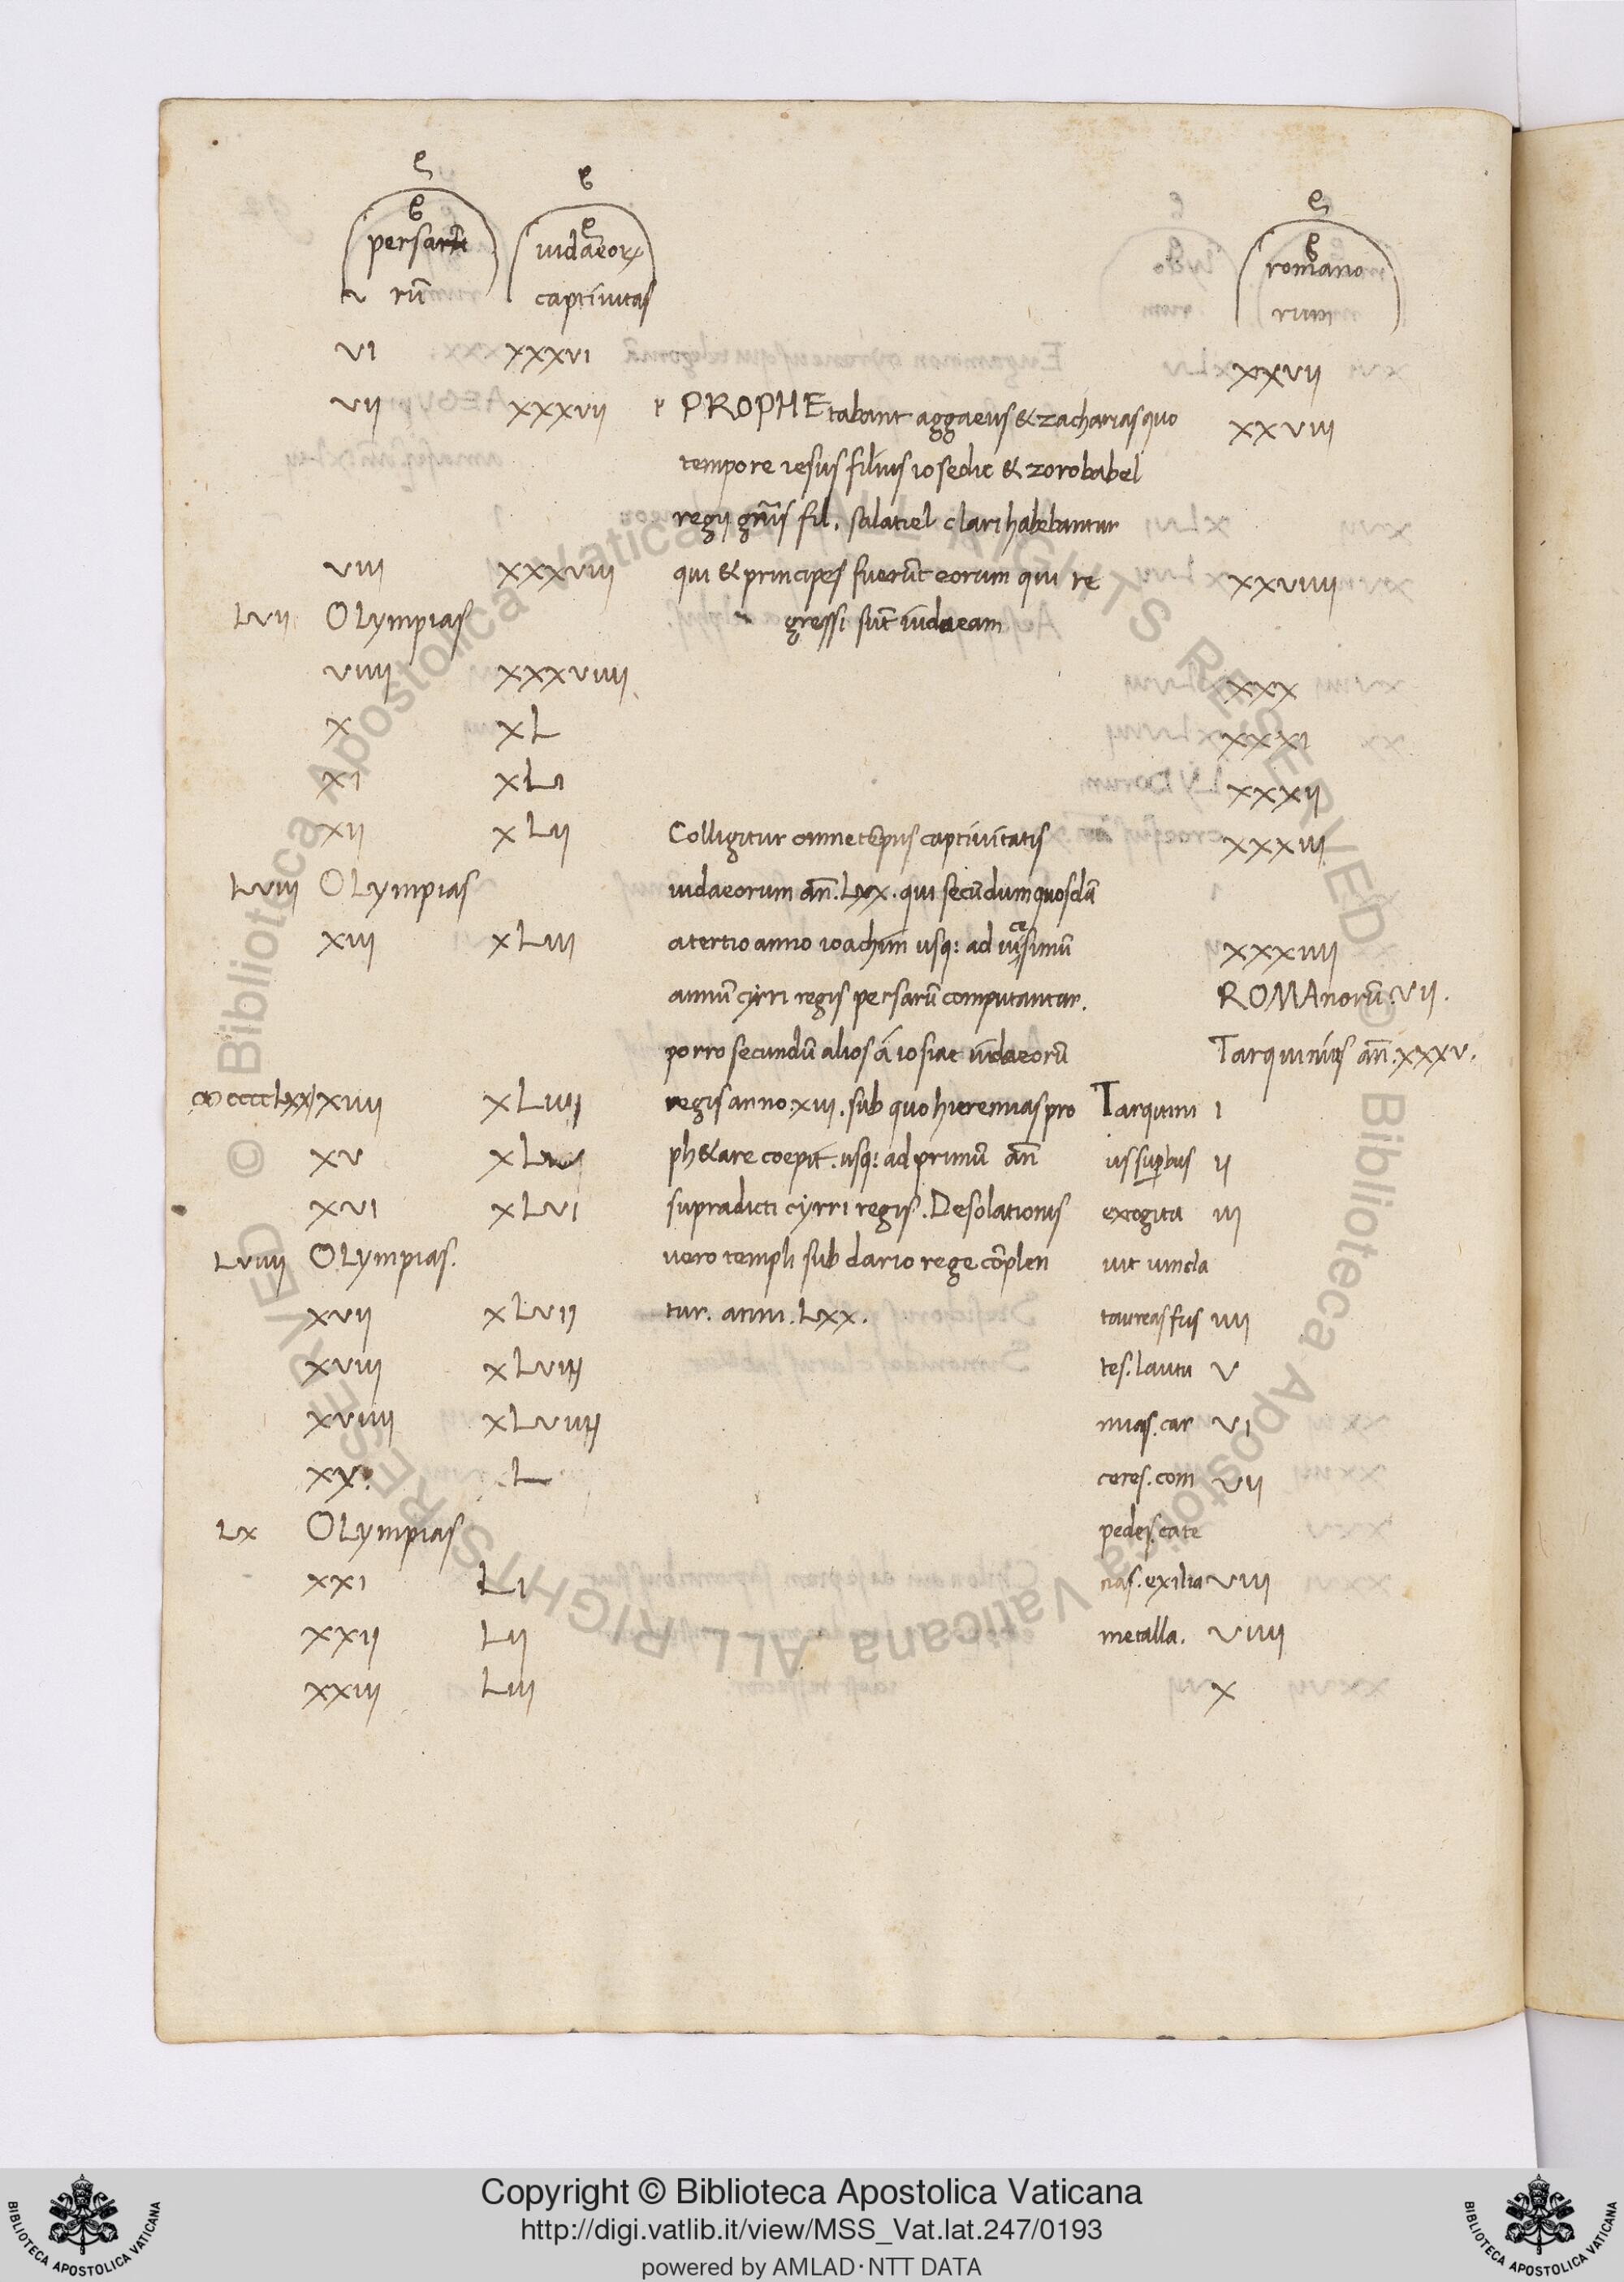 persarū iudaeoꝝ romano
rū captiuitas rum
VI XXXVI XXVII
VII XXXVII PROPHEtabant aggaeus & zacharias quo XXVIII
tempore iesus filius iosedic & zorobabel
regij gn̄is fil. salatiel clari habebantur
VIII XXXVIII qui & principes fuerūt eorum qui re XXVIIII
LVII OLympias gressi sūt iudaeam
VIIII XXXVIIII XXX
X XL XXXI
XI XLI XXXII
XII XLII Colligitur omne tēpus captiuitatis XXXIII
LVIII OLympias iudaeorum an̄. LXX. qui secūdum quosdā
XIII XLIII a tertio anno ioachim usq: ad uicesimū XXXIIII
annū cyrri regis persarū computantur. ROMAnorū. VII.
porro secundū alios a iosiae iudaeorū Tarquinius an̄. XXXV.
ꝏ ccccLXX XIIII XLIIII regis anno. XIII. sub quo hieremias pro Tarquini I
XV XLV ph&are coepit. usq: ad primū an̄ us suꝑbus II
XVI XLVI supradicti cyrri regis. Desolationis excogita III
LVIIII OLympias. uero templi sub dario rege cōplen uit uincla
XVII XLVII tur. anni. LXX. taureas fus IIII
XVIII XLVIII tes. lautu V
XVIIII XLVIIII mias. car VI
XX L ceres. com VII
LX OLympias pedes. cate
XXI LI nas. exilia VIII
XXII LII metalla. VIIII
XXIII LIII X
© Biblioteca Apostolica Vaticana ALL RIGHTS RESERVED © Biblioteca Apostolica Vaticana ALL RIGHTS RESERVED
Copyright © Biblioteca Apostolica Vaticana
http://digi.vatlib.it/view/MSS_Vat.lat.247/0193
powered by AMLAD·NTT DATA
BIBLIOTECA APOSTOLICA VATICANA
BIBLIOTECA APOSTOLICA VATICANA